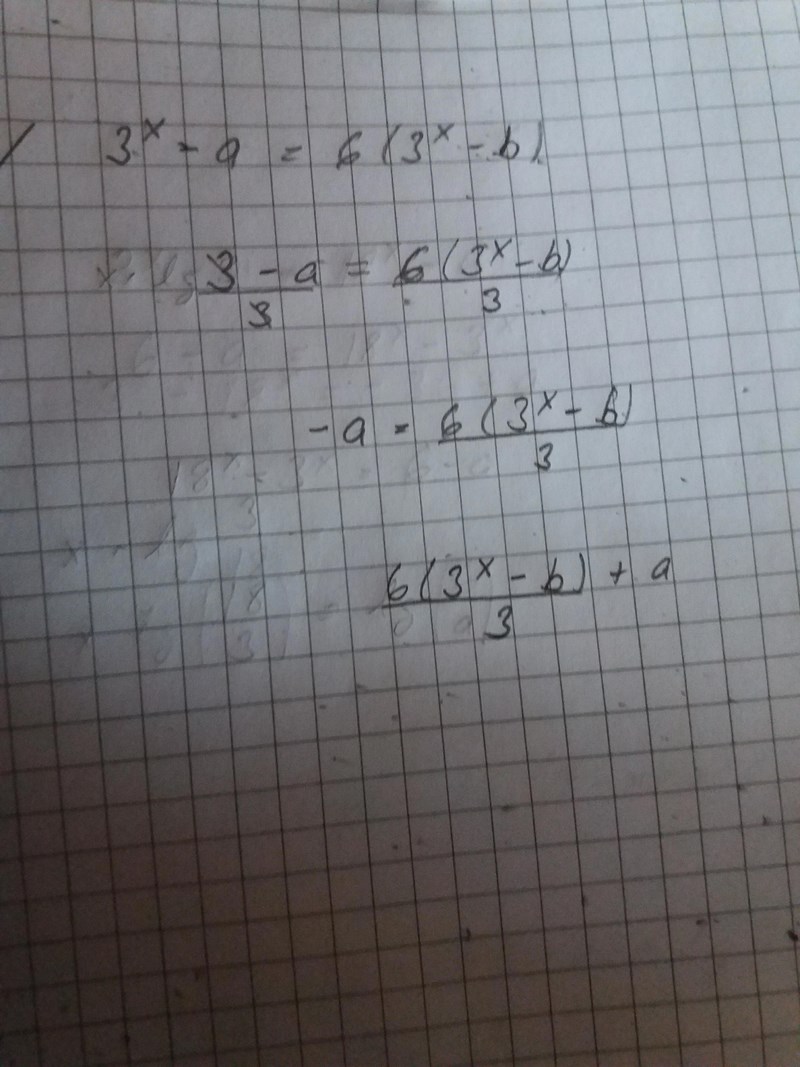 3^x - a = 6 (3^x - b)
3 - a / 3 = 6 (3^x - b) / 3
- a = 6 (3^x - b) / 3
6 (3^x - b) / 3 + a